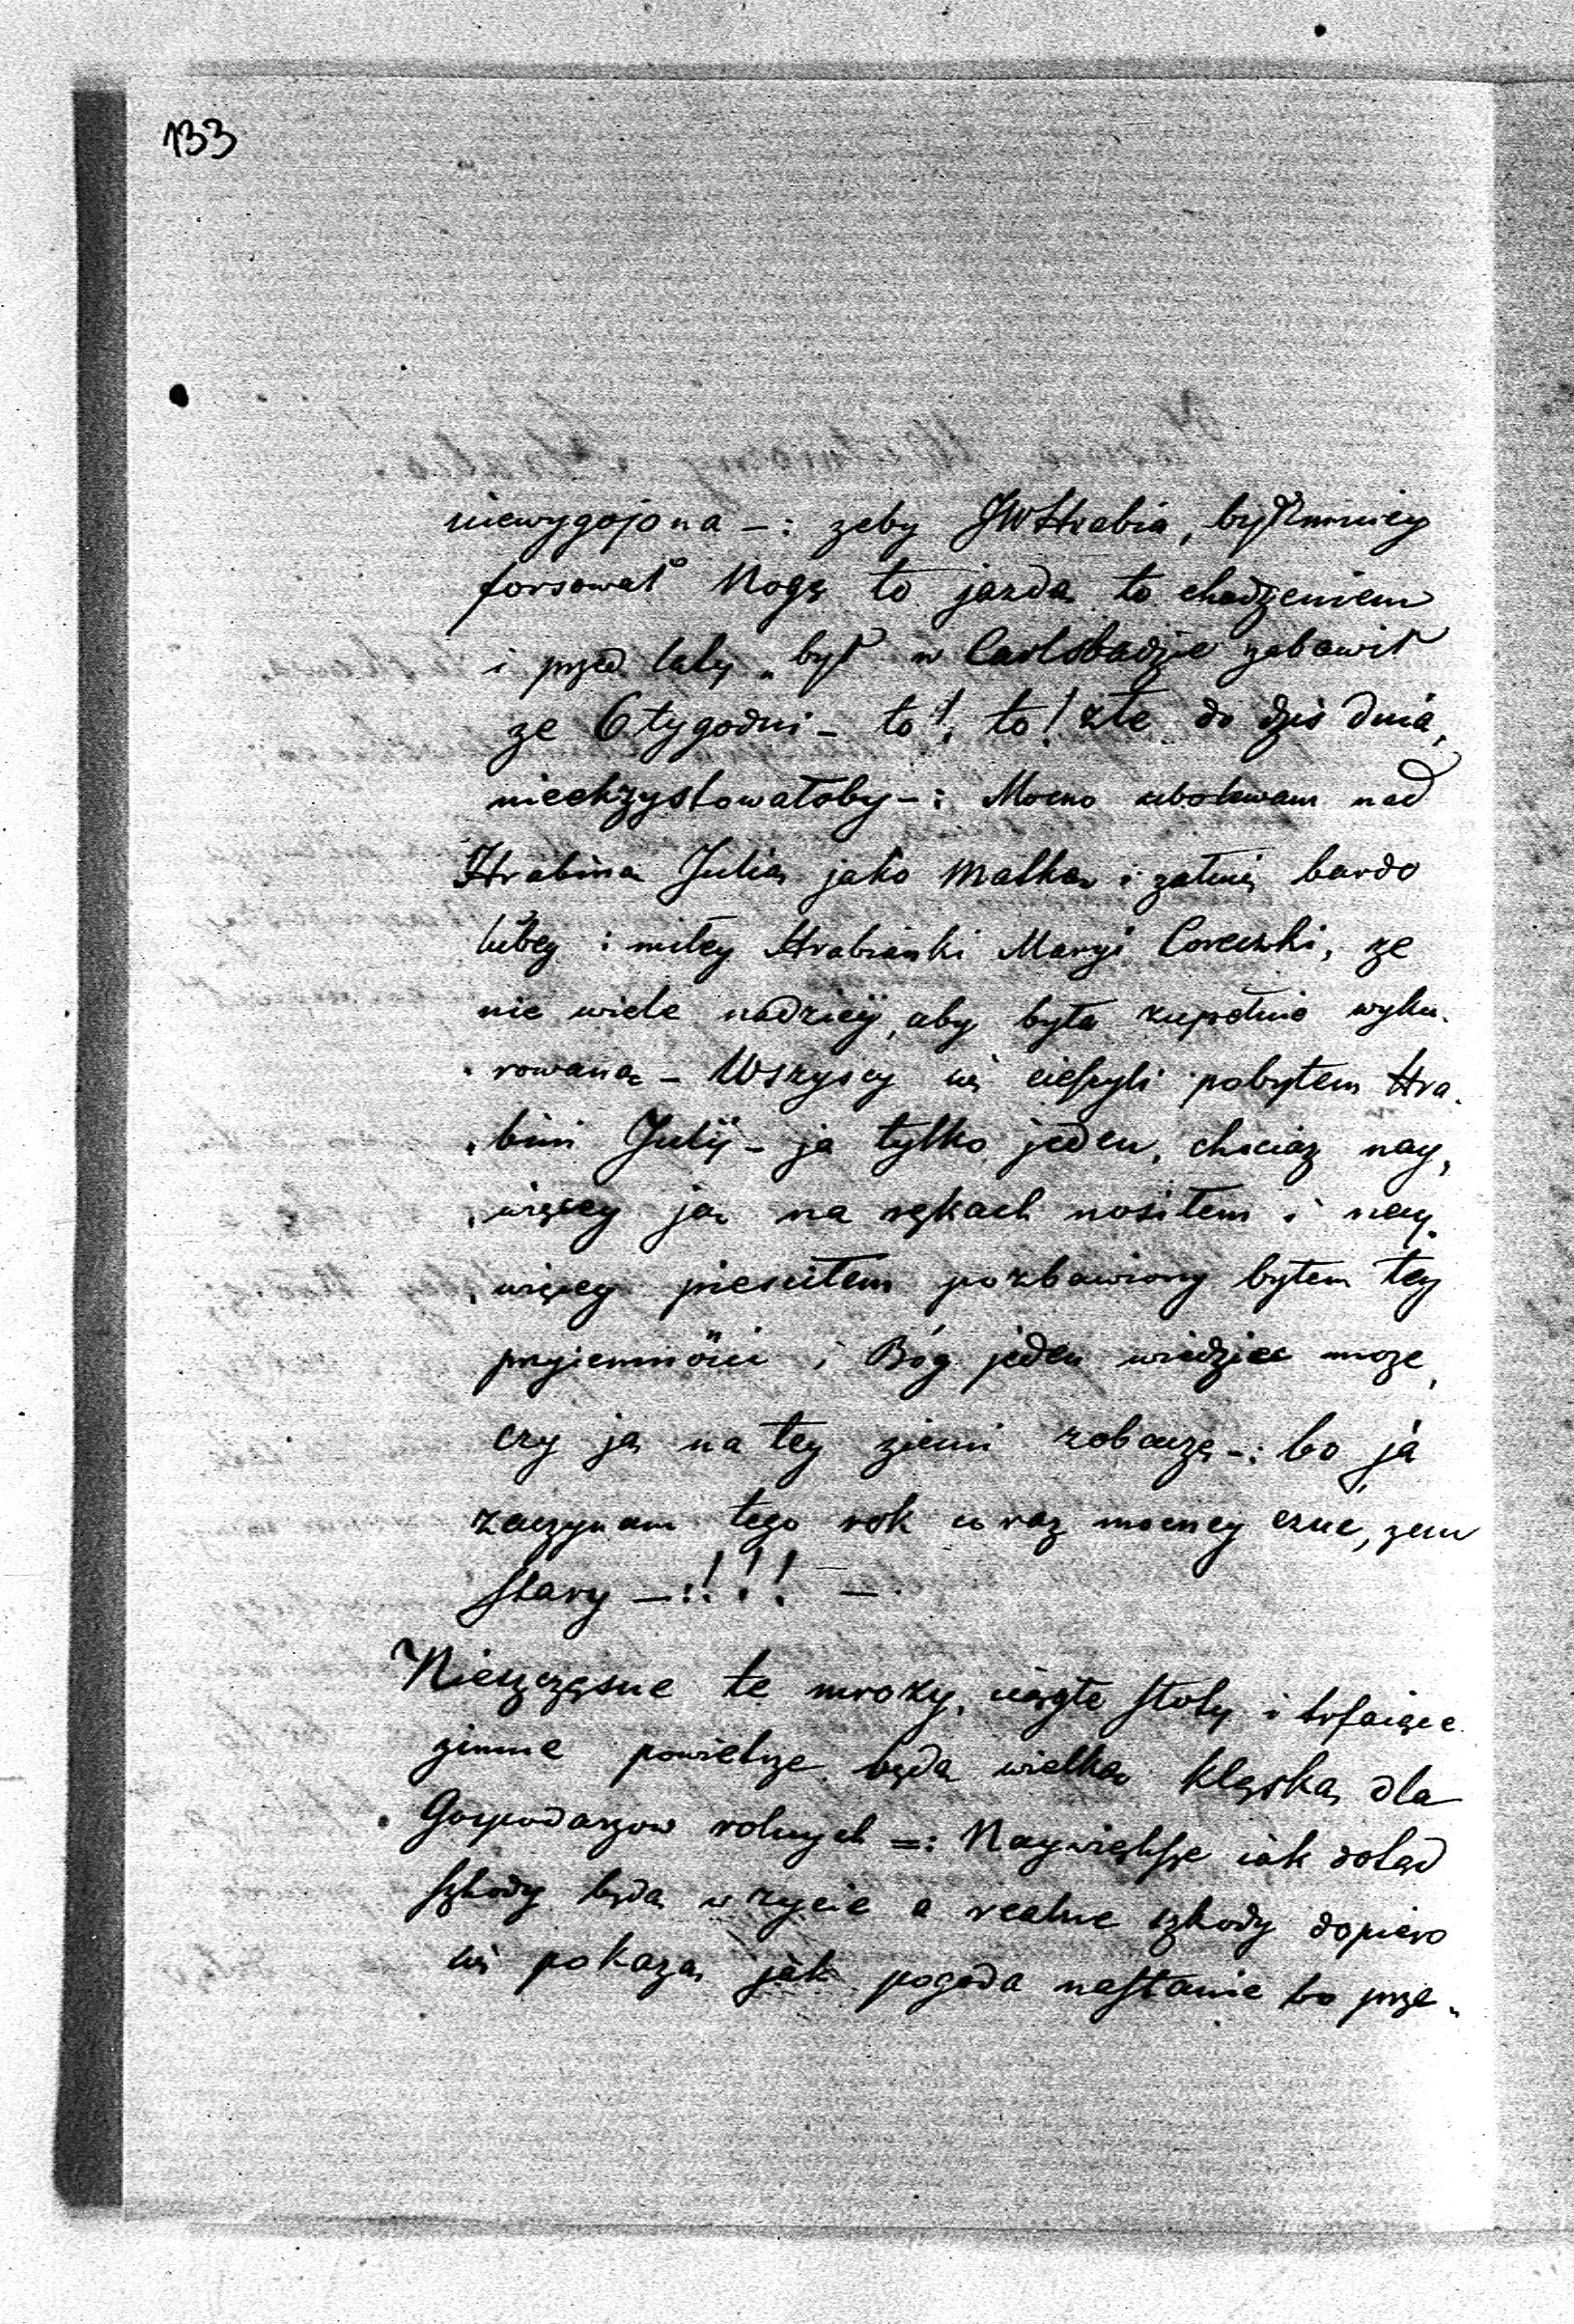 133
niewygojona -: zeby JWHrabia, był mniey
forsował Nogę to jazdą to chodzeniem
i przed laty był w Carlsbadzie zabawił
ze 6 tygodni - to! to! złe do dziś dnia,
nieekzystowałoby -: Mocno ubolewam nad
Hrabiną Julią jako Matką i żalmę bardo
lubey i miłey Hrabianki Maryi Coreczki, ze
nie wiele nadzieÿ, aby była zupełnie wyku-
rowaną - Wszyscy się cieszyli pobytem Hra-
bini Julÿ - ja tylko jeden, chociaz nay,
więcey ją na rękach nosiłem i nay,
więcey piesciłem pozbawiony byłem tey
przyiemności i Bóg jeden wiedziec moze,
czy ją na tey ziemi zobaczę -: bo ja
zaczynam tego rok coraz mocney czuc, zem
stary -:!!! -.
Nieszczęsne te mrozy, ciągłe słoty i
zimne powietrze będą wielką klęską dla
Gospodarzow rolnych =: Naywiększe iak dotąd
szkody będą w zycie a realne szkody dopiero
się pokazą jak pogoda nastanie bo prze-